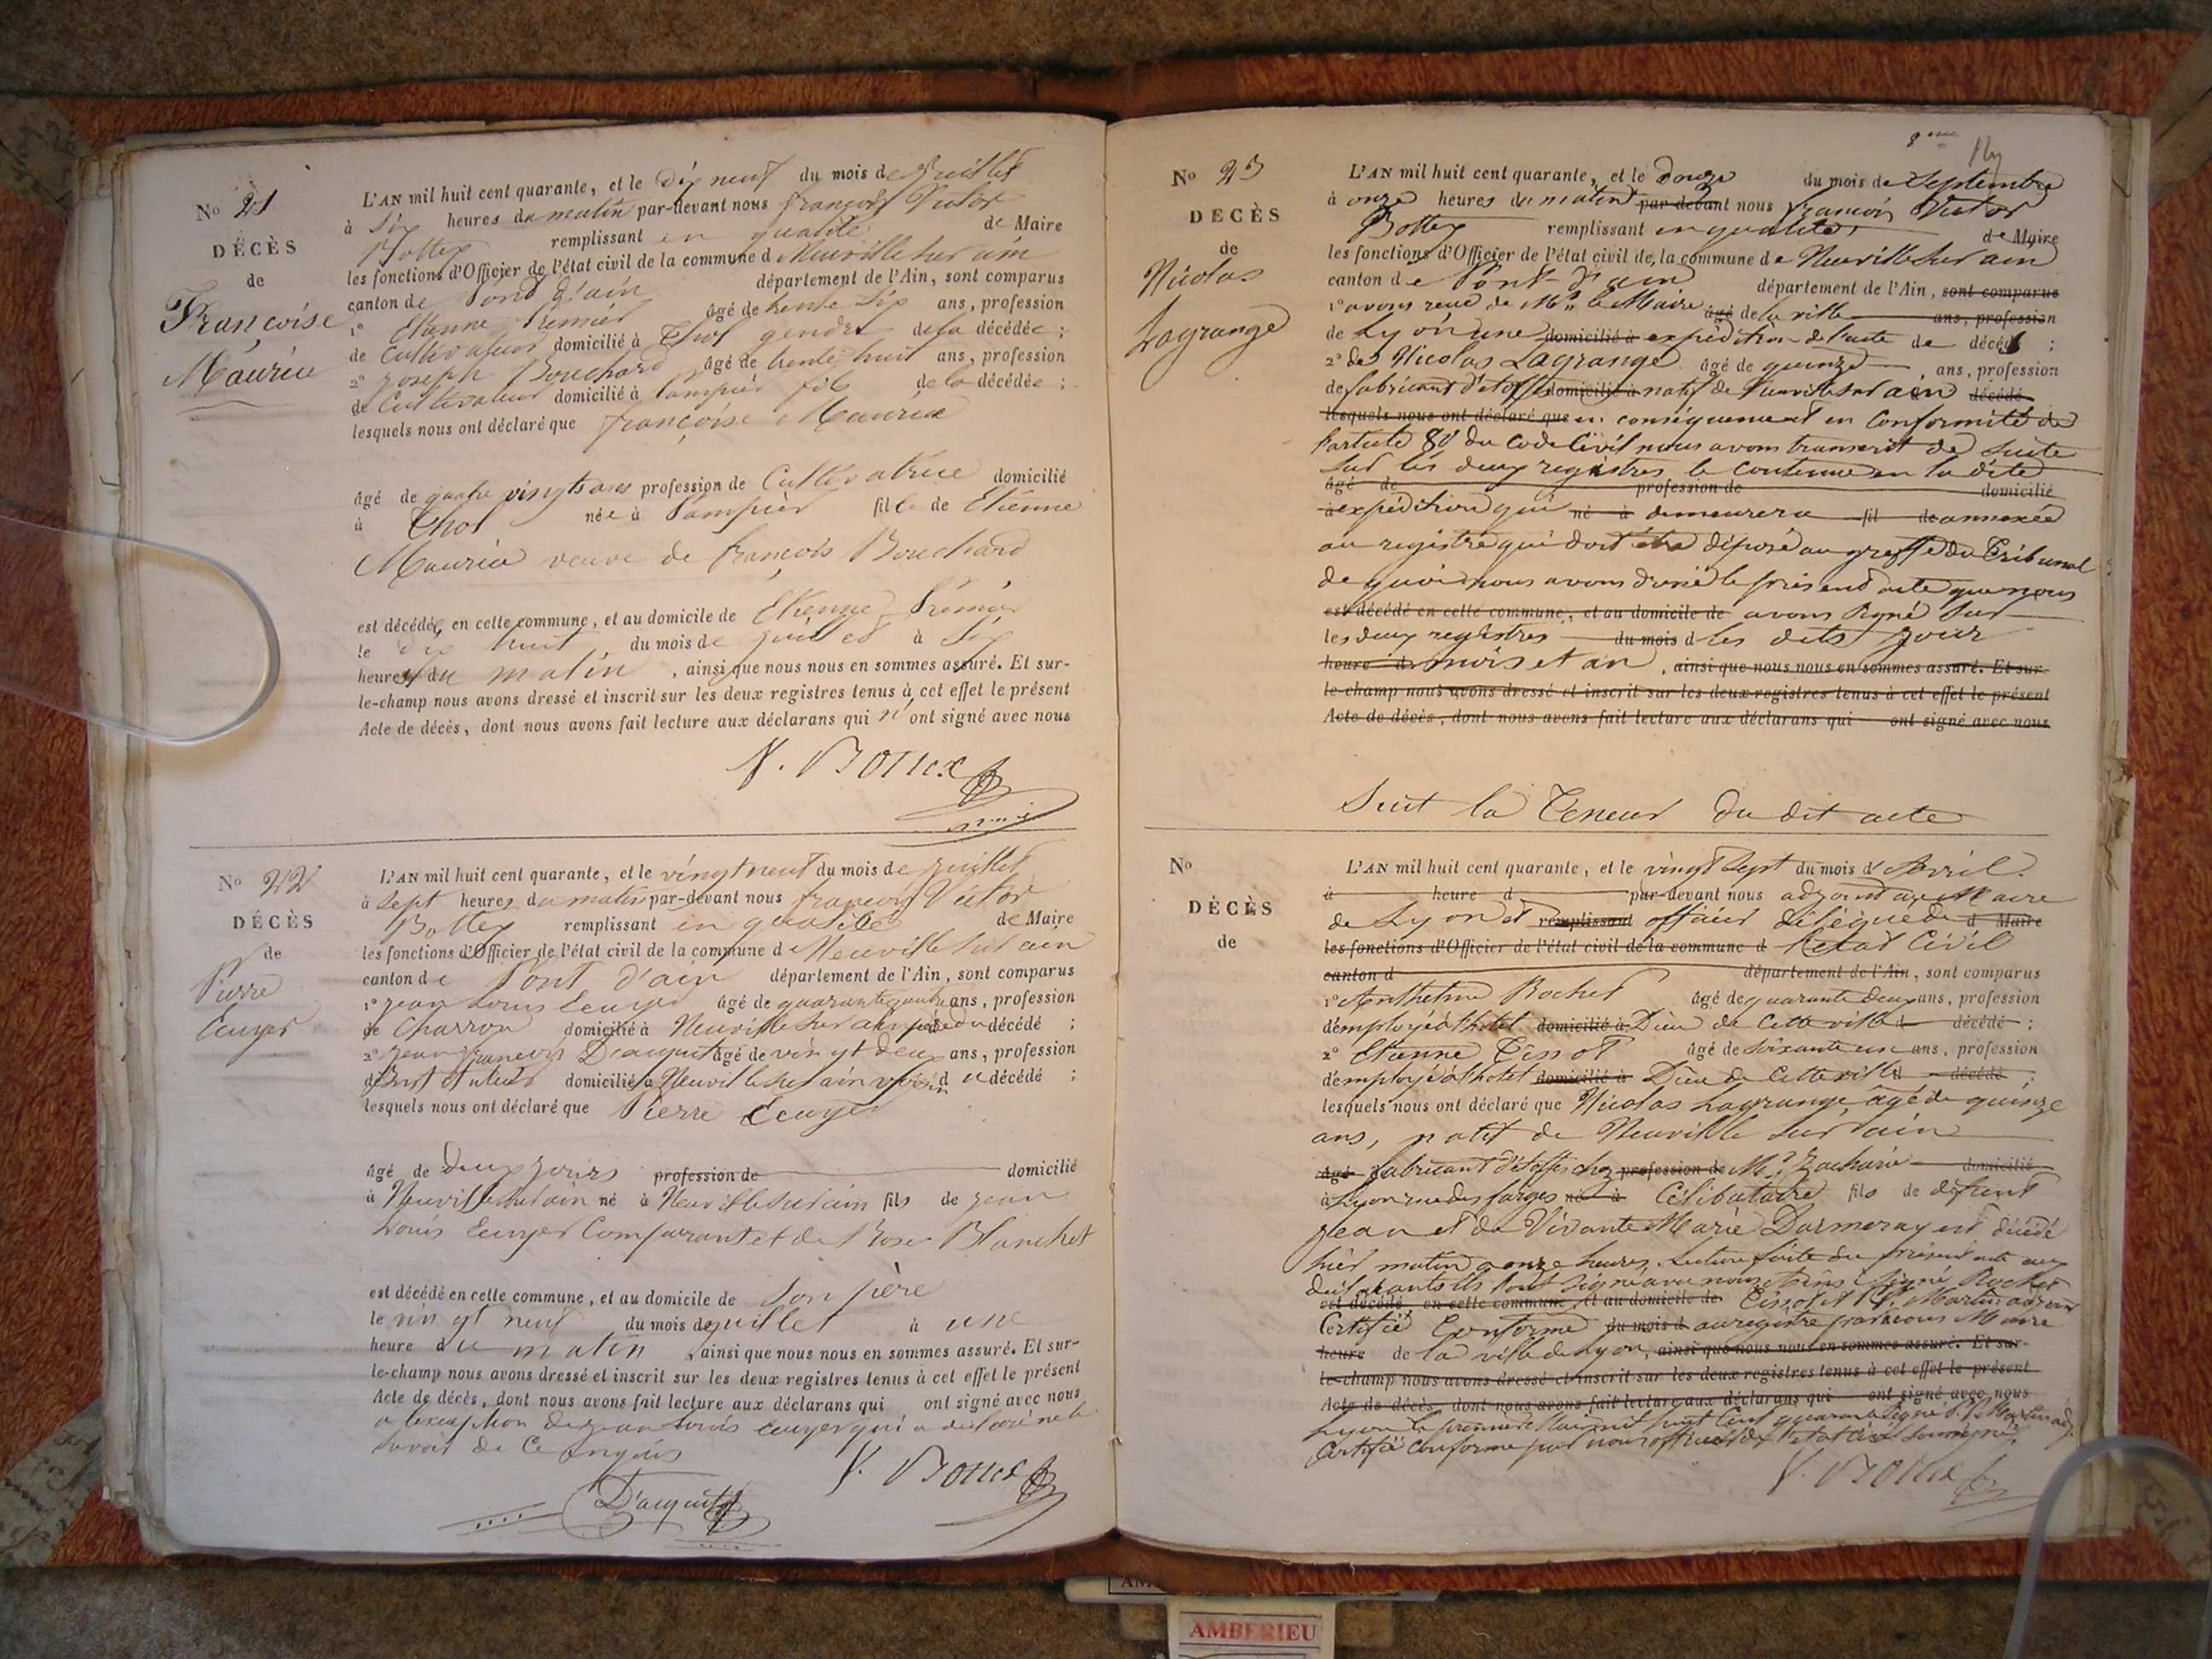 No 21
DÉCÈS
de
Françoise
Maurice
L'AN mil huit cent quarante, et le dix neuf du mois de Juillet
à six heures du matin par-devant nous françois Victor
Bottex remplissant en qualité de Maire
les fonctions d'Officier de l'état civil de la commune d Neuville sur ain
canton de Pont d'ain département de l'Ain, sont comparus
1° Etienne Premier âgé de trente six ans, profession
de Cultivateur domicilié à Thol gendre de la décédée ;
2° Joseph Bouchard âgé de trente huit ans, profession
de Cultivateur domicilié à Pampier fils de la décédée ;
lesquels nous ont déclaré que françoise Maurice
âgé de quatre vingts ans profession de Cultivatrice domicilié
à Thol née à Pampier fille de Etienne
Maurice veuve de françois Bouchard
est décédée, en cette commune, et au domicile de Etienne Premier
le dix huit du mois de juillet à six
heures du matin, ainsi que nous nous en sommes assuré. Et sur-
le-champ nous avons dressé et inscrit sur les deux registres tenus à cet effet le présent
Acte de décès, dont nous avons fait lecture aux déclarans qui n'ont signé avec nous
V. Bottex
No 22
DÉCÈS
de
Pierre
Ecuyer
L'AN mil huit cent quarante, et le vingt neuf du mois de juillet
à sept heures du matin par-devant nous françois Victor
Bottex remplissant en qualité de Maire
les fonctions d'Officier de l'état civil de la commune d Neuville sur ain
canton de Pont d'ain département de l'Ain, sont comparus
1° jean Louis Ecuyer âgé de quarante quatre ans, profession
de Charron domicilié à Neuville sur ain père du décédé ;
2° jean françois Dacquit âgé de vingt deux ans, profession
d'instituteur domicilié à Neuville sur ain voisin d u décédé ;
lesquels nous ont déclaré que Pierre Ecuyer
âgé de deux jours profession de domicilié
à Neuville sur ain né à Neuville sur ain fils de jean
Louis Ecuyer Comparant et de Rose Blanchet
est décédé en cette commune, et au domicile de son père
le vingt neuf du mois de juillet à une
heure du matin, ainsi que nous nous en sommes assuré. Et sur-
le-champ nous avons dressé et inscrit sur les deux registres tenus à cet effet le présent
Acte de décès, dont nous avons fait lecture aux déclarans qui ont signé avec nous
a l'exeption de jean Louis Ecuyer qui a déclaré ne le
savoir de ce enquis
V. Bottex
Dacquit
8eme
No 23
DÉCÈS
de
Nicolas
Lagrange
L'AN mil huit cent quarante, et le douze du mois de Septembre
à onze heures du matin par devant nous françois Victor
Bottex remplissant en qualité de Maire
les fonctions d'Officier de l'état civil de la commune de Neuville sur ain
canton de Pont d'ain département de l'Ain, sont comparus
1° avons reçu de Mr le Maire âgé de la ville ans, profession
de Lyon une domicilié à expédition de l'acte de décès ;
2° de Nicolas Lagrange âgé de quinze ans, profession
de fabricant d'étoffe domicilié à natif de Neuville sur ain décédé
lesquels nous ont déclaré que en conséquence et en Conformité de
l'article 80 du Code Civil nous avons transcrit de suite
sur les deux registres le contenue en la dite
âgé de profession de domicilié
à expédition qui né à demeurera fil de annexée
au registre qui doit être déposé au greffe du Tribunal
de quoi nous avons dressé le présent acte que nous
est décédé en cette commune, et au domicile de avons signé sur
les deux registres du mois d les dits jour
heure d mois et an, ainsi que nous nous en sommes assuré. Et sur-
le-champ nous avons dressé et inscrit sur les deux registres tenus à cet effet le présent
Acte de décès, dont nous avons fait lecture aux déclarans qui ont signé avec nous
Suit la Teneur du dit acte
No
DÉCÈS
de
L'AN mil huit cent quarante, et le vingt sept du mois d'Avril.
à heure d par-devant nous adjoint au Maire
de Lyon et remplissant officier délégué de d Maire
les fonctions d'Officier de l'état civil de la commune d l'état Civil
canton d département de l'Ain, sont comparus
1° Anthelme Rochet âgé de quarante deux ans, profession
d'employé à l'hotel domicilié à Dieu de cette ville d décédé ;
2° Etienne Tissot âgé de soixante un ans, profession
d'employé à l'hotel domicilié à Dieu de Cette ville d décédé ;
lesquels nous ont déclaré que Nicolas Lagrange, âgé de quinze
ans, natif de Neuville sur ain
âgé fabricant d'étoffes chez profession de Mr Zacharie domicilié
à Lyon rue des farges né à Célibataire fils de défunt
Jean et de Vivante Marie Darmeray est décédé
hier matin a onze heures. Lecture faite du présent acte aux
déclarants ils l'ont signé avec nous Signé Rochet
est décédé, en cette commune, et au domicile de Tissot et Martin adjoint
Certifié Conforme du mois d au registre par nous Maire
heure de la ville de Lyon, ainsi que nous nous en sommes assuré. Et sur-
le-champ nous avons dressé et inscrit sur les deux registres tenus à cet effet le présent
Acte de décès, dont nous avons fait lecture aux déclarans qui ont signé avec nous
Lyon le premier Mai mil huit Cent quarante Signé Martin adj.
Certifié conforme par nous officier de l'état civil soussigné
V. Bottex
AMBERIEU